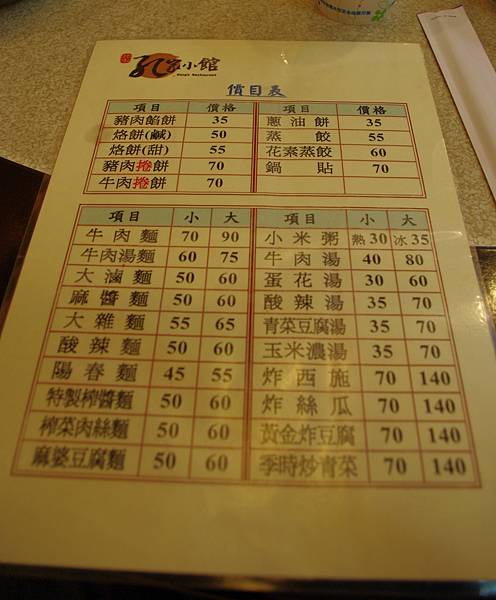 孔家小館
價目表
項目 價格 項目 價格
豬肉餡餅 35 蔥油餅 35
烙餅(鹹) 50 蒸餃 55
烙餅(甜) 55 花素蒸餃 60
豬肉捲餅 70 鍋貼 70
牛肉捲餅 70
項目 小 大 項目 小 大
牛肉麵 70 90 小米粥 熱30 冰35
牛肉湯麵 60 75 牛肉湯 40 80
大滷麵 50 60 蛋花湯 30 60
麻醬麵 50 60 酸辣湯 35 70
大雜麵 55 65 青菜豆腐湯 35 70
酸辣麵 50 60 玉米濃湯 35 70
陽春麵 45 55 炸西施 70 140
特製榨醬麵 50 60 炸絲瓜 70 140
榨菜肉絲麵 50 60 黃金炸豆腐 70 140
麻婆豆腐麵 50 60 季時炒青菜 70 140